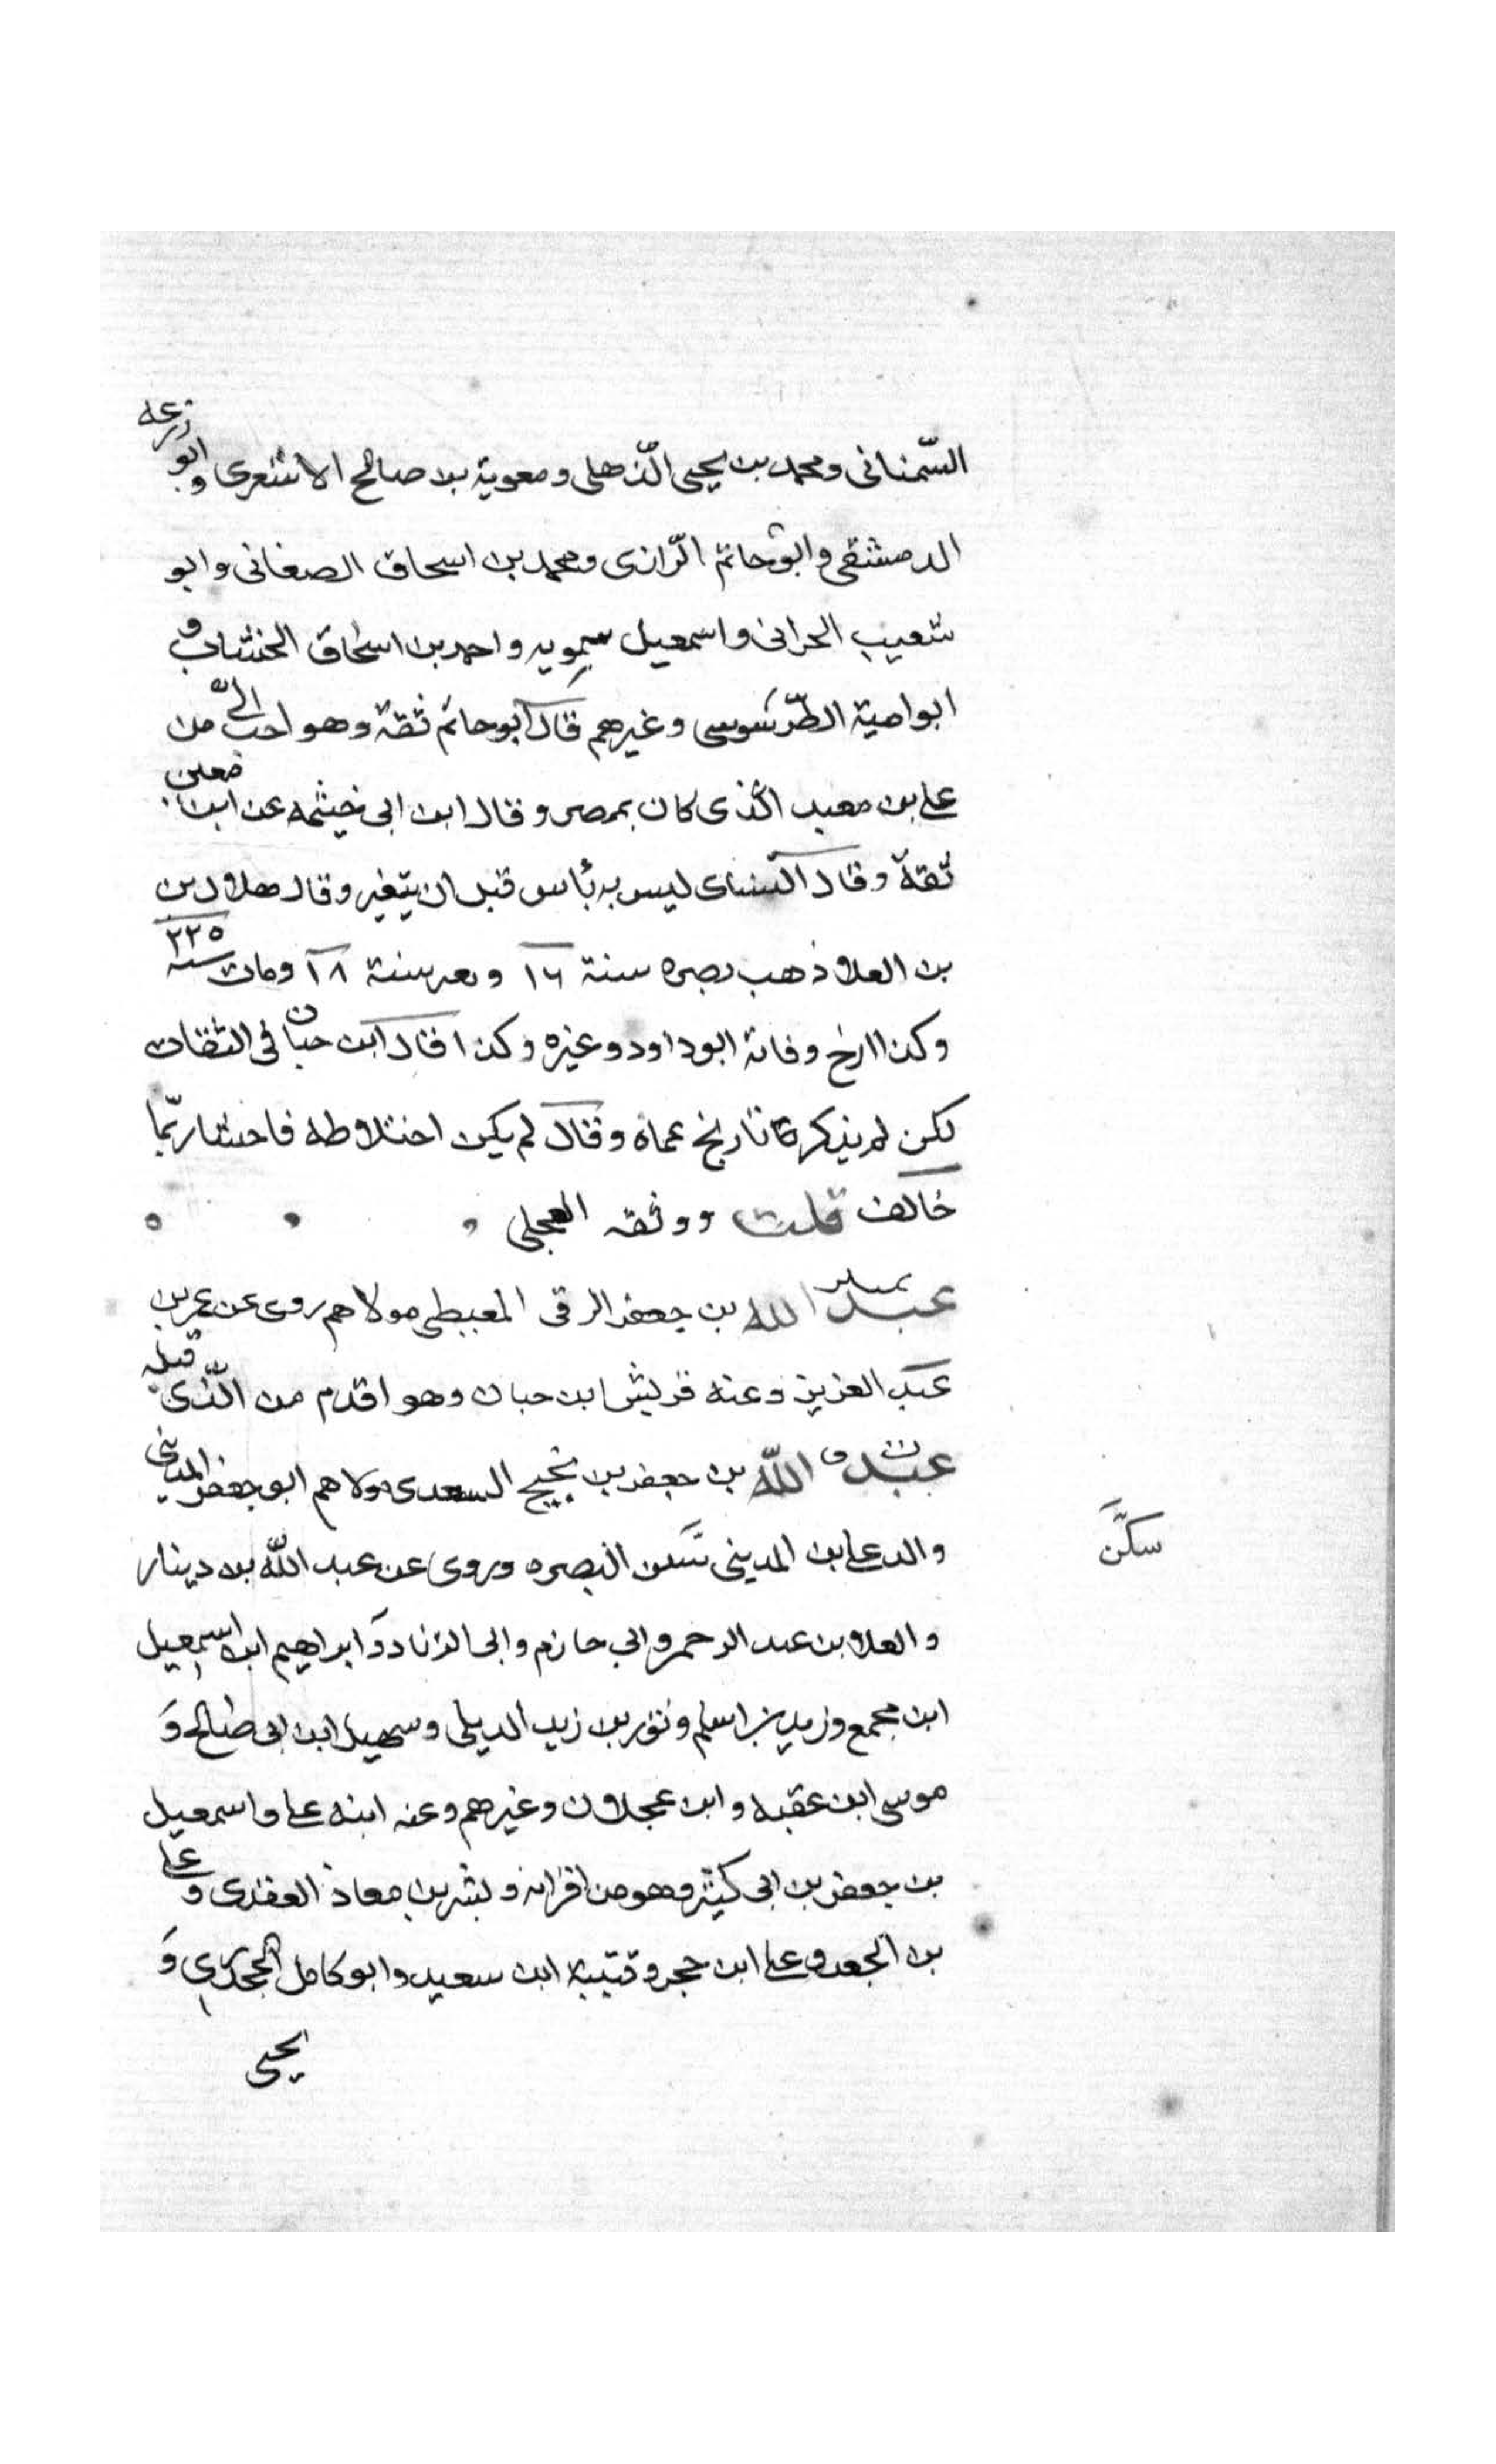 السّمنانى ومحمد بن يحيى الذّهلى ومعوية بن صالح الاشعرى وابو زرعه
الدمشقى وابو حاتم الرّازى ومحمد بن اسحاق الصغانى وابو
شعيب الحرانى واسمعيل سمويه واحمد بن اسحاق الخشاب و
ابو امية الطّرسوسى وغيرهم قال ابو حاتم ثقة وهو احب الىّ من
على بن معبد الذى كان بمصر وقال ابن ابى خيثمه عن ابن معين
ثقة وقال النساى ليس به بأس قبل ان يتغير وقال هلال بن
بن العلا ذهب بصره سنة ١٦ وتغير سنة ١٨ ومات سنة ٢٢٥
وكذا ارخ وفاته ابو داود وغيره وكذا قال ابن حبان فى الثقات
لكن لم يذكر تاريخ عماه وقال لم يكن اختلاطه فاحشا ربّما
خالف قلت ووثقه العجلى
عبد الله بن جعفر الرقى المعيطى مولاهم روى عن عمر بن
عبد العزيز وعنه قريش ابن حبان وهو اقدم من الّذى قبله
عبد الله بن جعفر بن نجيح السعدى مولاهم ابو جعفر المدينى
والد على بن المدينى سكن البصره وروى عن عبد الله بن دينار
سكن
والعلا بن عبد الرحمن وابى حازم وابى الزناد وابراهيم ابن اسمعيل
ابن مجمع وزيد بن اسلم وثور بن زيد الديلى وسهيل ابن ابى صالح و
موسى ابن عقبه وابن عجلان وغيرهم وعنه ابنه على واسمعيل
بن جعفر بن ابى كثير وهو من اقرانه وبشر بن معاذ العقدى وعلى
بن الجعد وعلى ابن حجر وقتيبة ابن سعيد وابو كامل الجحدرى و
يحيى